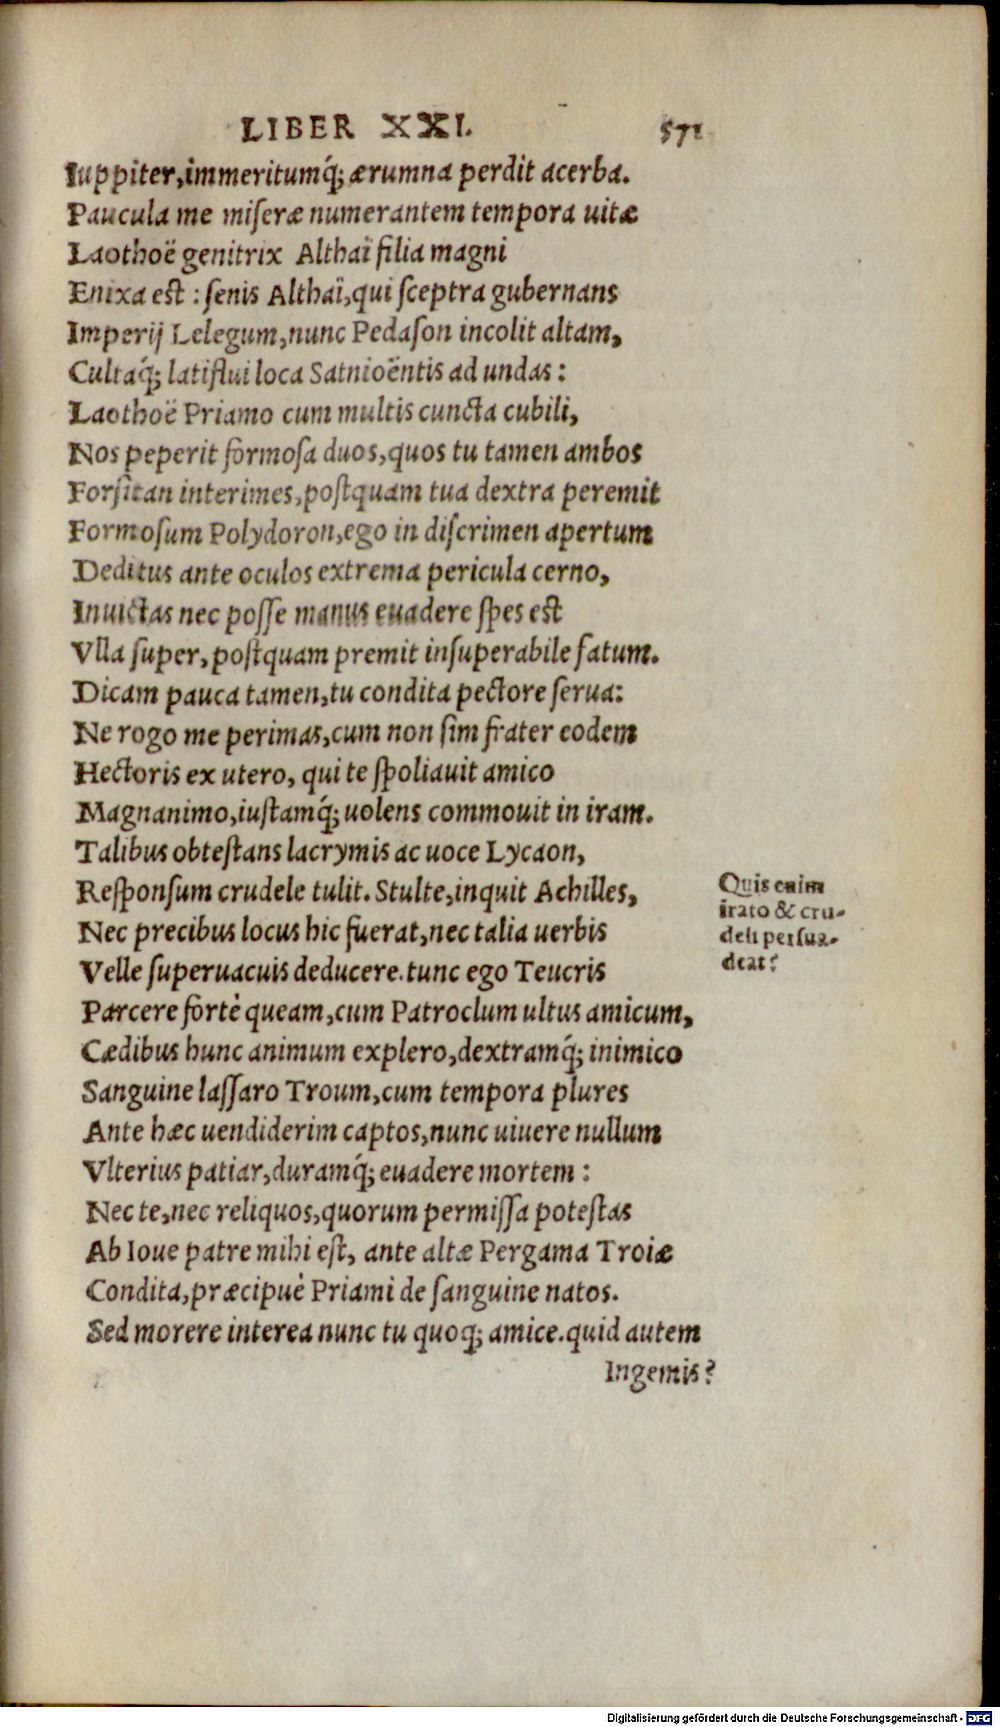 LIBER XXI. 571
Iuppiter, immeritumq́; ærumna perdit acerba.
Paucula me miseræ numerantem tempora uitæ
Laothoë genitrix Althaï filia magni
Enixa est : senis Althaï, qui sceptra gubernans
Imperij Lelegum, nunc Pedason incolit altam,
Cultaq́; latiflui loca Satnioëntis ad undas :
Laothoë Priamo cum multis cuncta cubili,
Nos peperit formosa duos, quos tu tamen ambos
Forsitan interimes, postquam tua dextra peremit
Formosum Polydoron, ego in discrimen apertum
Deditus ante oculos extrema pericula cerno,
Inuictas nec posse manus euadere spes est
Vlla super, postquam premit insuperabile fatum.
Dicam pauca tamen, tu condita pectore serua:
Ne rogo me perimas, cum non sim frater eodem
Hectoris ex utero, qui te spoliauit amico
Magnanimo, iustamq́; uolens commouit in iram.
Talibus obtestans lacrymis ac uoce Lycaon,
Responsum crudele tulit. Stulte, inquit Achilles,
Nec precibus locus hic fuerat, nec talia uerbis
Velle superuacuis deducere. tunc ego Teucris
Parcere fortè queam, cum Patroclum ultus amicum,
Cædibus hunc animum explero, dextramq́; inimico
Sanguine lassaro Troum, cum tempora plures
Ante hæc uendiderim captos, nunc uiuere nullum
Vlterius patiar, duramq́; euadere mortem :
Nec te, nec reliquos, quorum permissa potestas
Ab Ioue patre mihi est, ante altæ Pergama Troiæ
Condita, præcipuè Priami de sanguine natos.
Sed morere interea nunc tu quoq; amice. quid autem
Ingemis?
Quis enim
irato & cru-
deli persua-
deat?
Digitalisierung gefördert durch die Deutsche Forschungsgemeinschaft - DFG